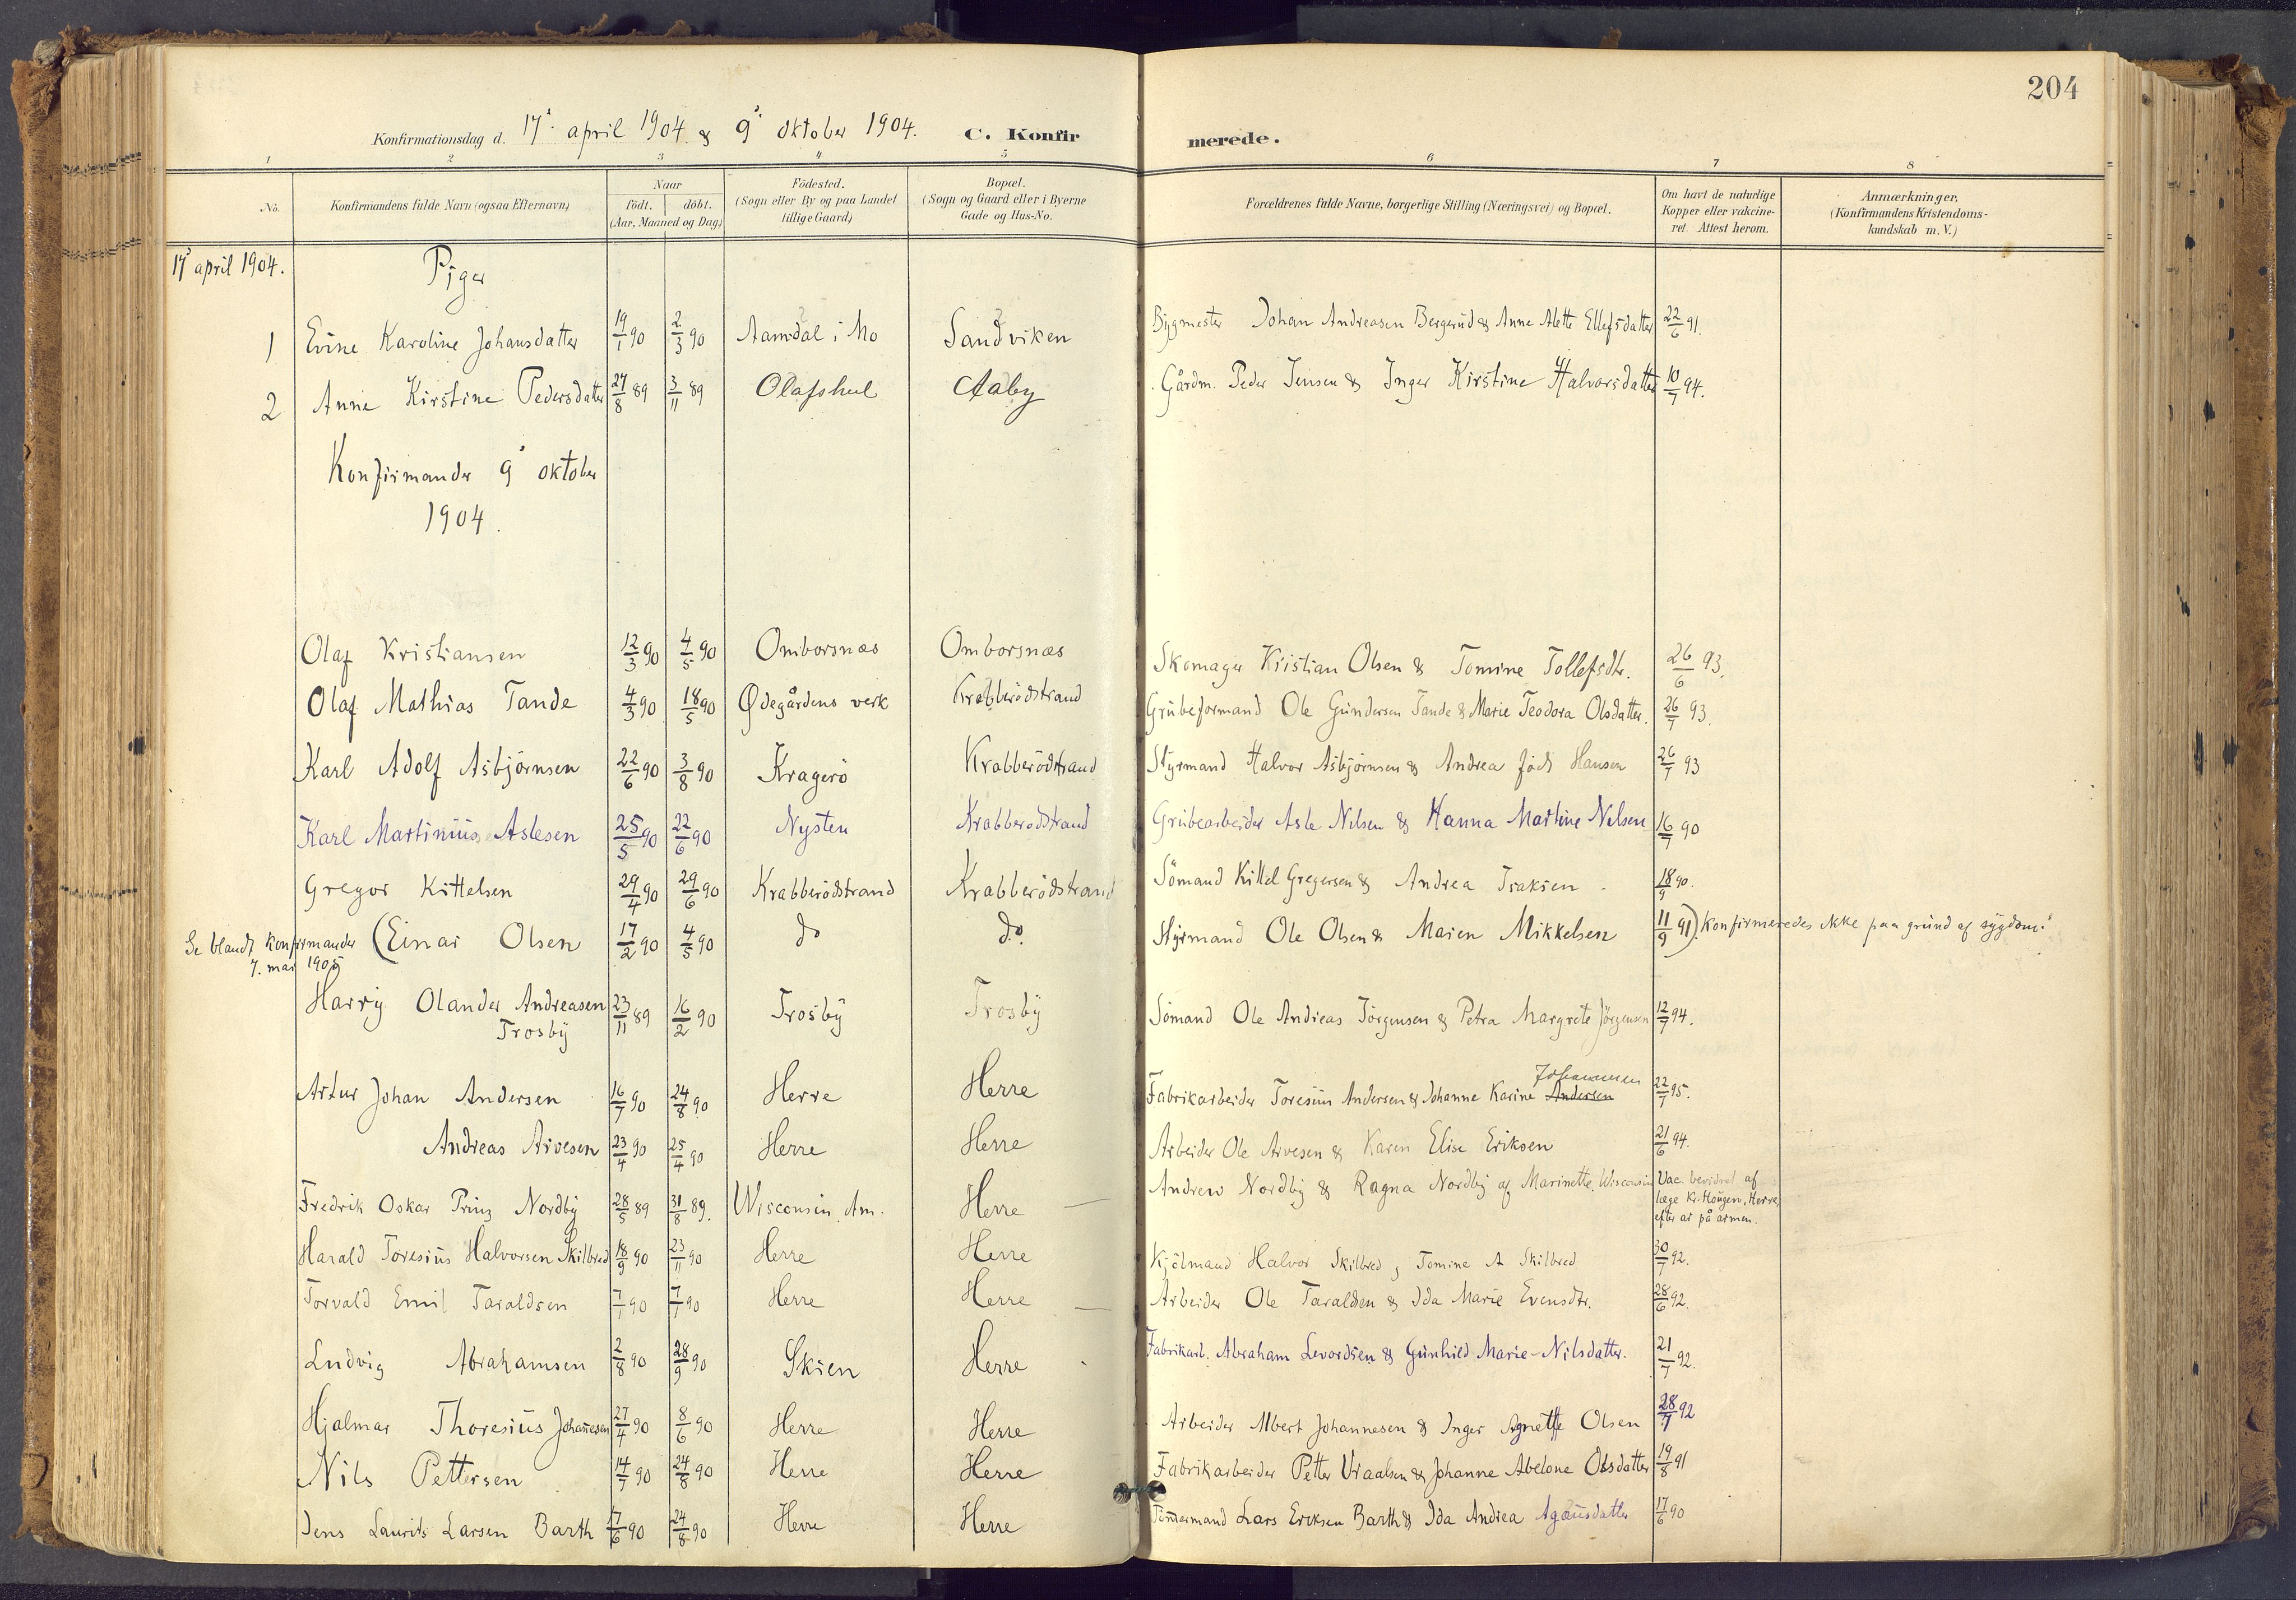 204
Konfirmationsdag d. 17' april 1904 & 9' oktober 1904. C. Konfirmerede.
1 2 3 4 5 6 7 8
No. Konfirmandens fulde Navn (ogsaa Efternavn) Naar födt. döbt. (Aar, Maaned og Dag) Födested. (Sogn eller By og paa Landet tillige Gaard) Bopæl. (Sogn og Gaard eller i Byerne Gade og Hus-No. Forældrenes fulde Navne, borgerlige Stilling (Næringsvei) og Bopæl. Om havt de naturlige Kopper eller vakcineret. Attest herom. Anmærkninger, (Konfirmandens Kristendomskundskab m. V.)
17' april 1904. Piger
1 Evine Karoline Johansdatter 19/1 90 2/3 90 Aamdal i Mo Sandviken Bygmester Johan Andreasen Bergerud & Anne Alette Ellefsdatter 22/6 91.
2 Anne Kirstine Pedersdatter 27/8 89 3/11 89 Olafshul Aaby Gårdm. Peder Jensen & Inger Kirstine Halvorsdatter 10/7 94.
Konfirmander 9' oktober
1904.
Olaf Kristiansen 12/3 90 4/5 90 Omborsnæs Omborsnæs Skomager Kristian Olsen & Tomine Tollefsdtr. 26/6 93.
Olaf Mathias Tande 4/3 90 18/5 90 Ødegårdens verk Krabberödstrand Grubeformand Ole Gundersen Tande & Marie Teodora Olsdatter. 26/7 93.
Karl Adolf Asbjörnsen 22/6 90 3/8 90 Kragerö Krabberödstrand Styrmand Halvor Asbjörnsen & Andrea födt Hansen 26/7 93
Karl Martinius Aslesen 25/5 90 22/6 90 Nysten Krabberödstrand Grubearbeider Asle Nilsen & Hanna Martine Nelsen 16/7 90
Gregor Kittelsen 29/4 90 29/6 90 Krabberödstrand Krabberödstrand Sömand Kittel Gregersen & Andrea Isaksen. 18/9 90.
Se blandt konfirmander (Einar Olsen 17/2 90 4/5 90 do do. Styrmand Ole Olsen & Maren Mikkelsen 11/9 91). Konfirmeredes ikke paa grund af sygdom.
7. mai 1905
Harry Olander Andreasen 23/11 89 16/2 90 Trosby Trosby Sömand Ole Andreas Jörgensen & Petra Margrete Jörgensen 12/7 94.
Trosby
Johannesen
Artur Johan Andersen 16/7 90 24/8 90 Herre Herre Fabrikarbeider Toresius Andersen & Johanne Karine Andersen 22/7 95.
Andreas Arvesen 23/4 90 25/4 90 Herre Herre Arbeider Ole Arvesen & Karen Elise Eriksen 21/6 94.
Fredrik Oskar Prinz Nordby 28/5 89 31/8 89. Wisconsin, Am. Herre Andrew Nordby & Ragna Nordby af Marinette, Wisconsin Vac. bevidnet af
læge Kr. Hougen, Herre,
efter ar på armen.
Harald Toresius Halvorsen Skilbred 18/9 90 23/11 90 Herre Herre Kjölmand Halvor Skilbred, Tomine A Skilbred 30/7 92.
Torvald Emil Taraldsen 7/1 90 7/7 90 Herre Herre Arbeider Ole Taraldsen & Ida Marie Evensdtr. 28/6 92.
Ludvig Abrahamsen 2/8 90 28/9 90 Skien Herre Fabrikarb. Abraham Levordsen & Gunhild Marie Nilsdatter. 21/7 92.
Hjalmar Thoresius Johannesen 27/4 90 8/6 90 Herre Herre Arbeider Albert Johannesen & Inger Agnette Olsen 28/7 92
Nils Pettersen 14/7 90 24/8 90 Herre Herre Fabrikarbeider Petter Vraalsen & Johanne Abelone Olsdatter 19/8 91
Jens Laurits Larsen Barth 17/6 90 24/8 90 Herre Herre Tömmermand Lars Eriksen Barth & Ida Andrea Agæusdatter 17/6 90